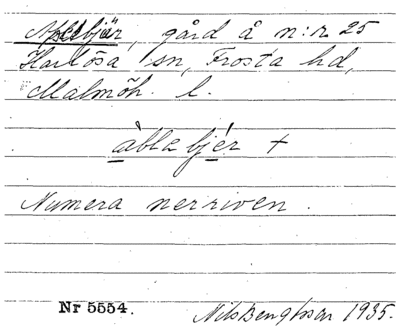 gård å n:r 25
Harlösa sn, Frosta hd,
Malmöh. l.
àblabjér +
Numera nerriven.
Nr 5554. Nils Bengtsson 1935.